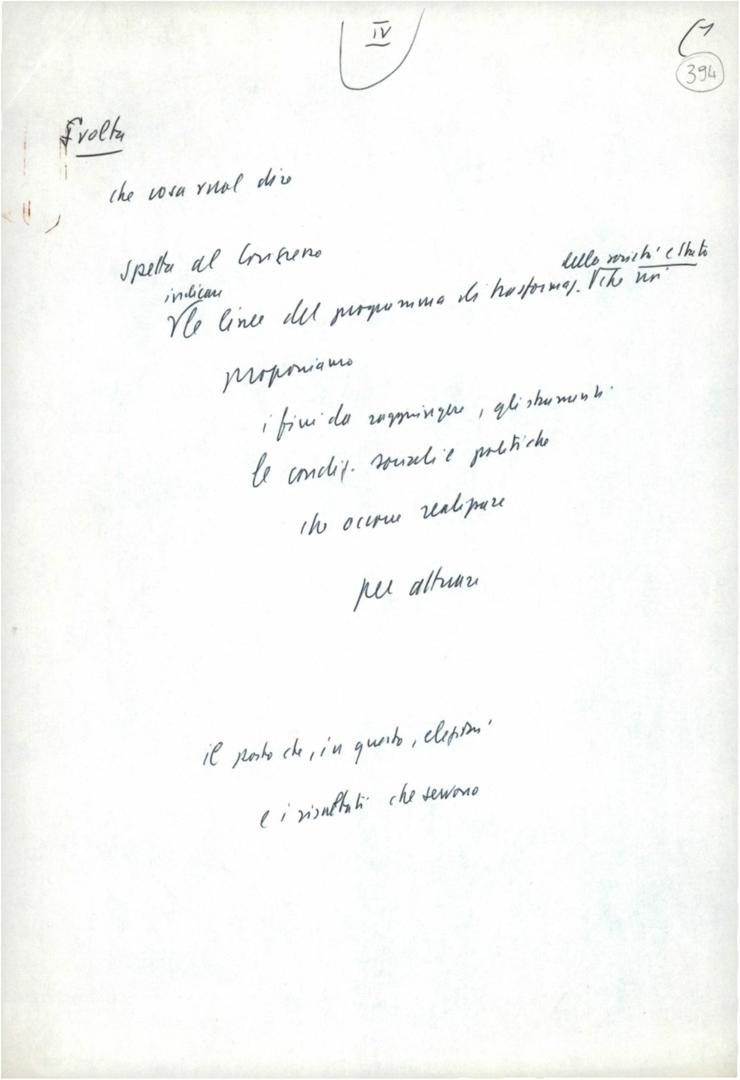 IV
394
Svolta
che cosa vuol dire
Spetta al Congresso
indicare
della società e Stato
le linee del programma di trasformaz. che noi
proponiamo
i fini da raggiungere, gli strumenti
le condiz. sociali e politiche
che occorre realizzare
per attuare
il posto che, in questo, elezioni
e i risultati che servono